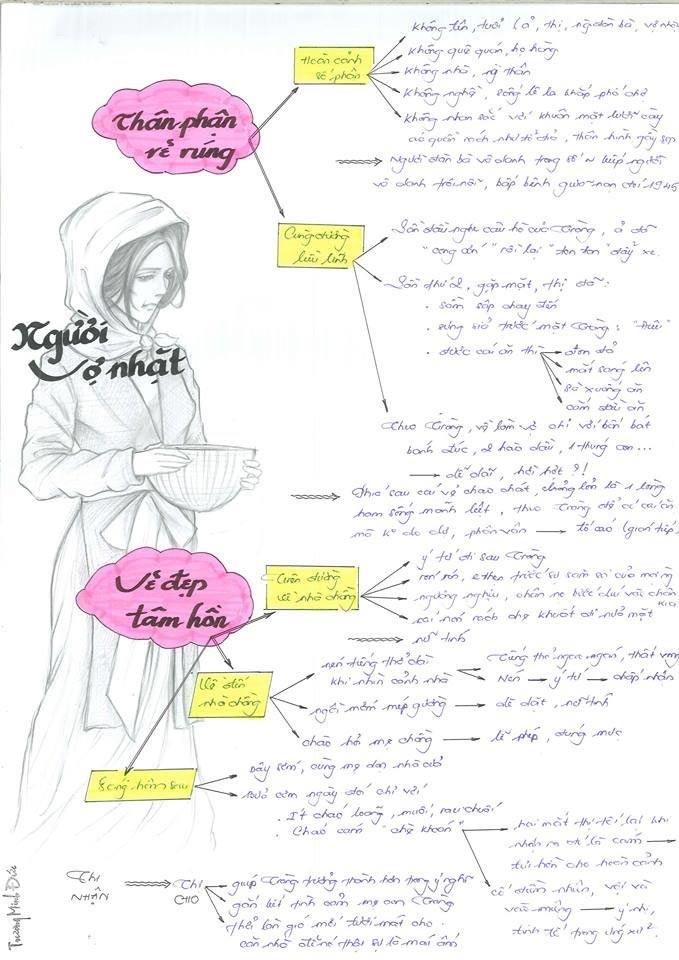 Người
vợ nhặt
Thân phận
rẻ rúng
Hoàn cảnh
số phận
Không tên, tuổi (ả, thị, người đàn bà, vợ nhặt
Không quê quán, họ hàng
Không nhà, người thân
Không nghề, sống lê la khắp phố chợ
Không nhan sắc với khuôn mặt lưỡi cày
áo quần rách như tổ đỉa, thân hình gầy sọp
Người đàn bà vô danh trong số N kiếp người
vô danh trôi nổi, bấp bênh giữa nạn đói 1945
Cung đường
lưu linh
Lần đầu nghe câu hò của Tràng, ả đã
"cong cớn" rồi lại "ton ton" đẩy xe.
Lần thứ 2, gặp mặt, thị đã:
. sầm sập chạy đến
. sưng sỉa trước mặt Tràng: "Điêu"
. được cái ăn thì
đon đả
mắt sáng lên
sà xuống ăn
cắm đầu ăn
Theo Tràng, về làm vợ chỉ với bốn bát
bánh đúc, 2 hào dầu, 1 thúng con...
dễ dãi, hời hợt ?!
Phía sau cái vẻ chao chát, chỏng lỏn là 1 lòng
ham sống mãnh liệt, theo Tràng để có cái ăn
mà k do dự, phân vân
tố cáo (gián tiếp)
Vẻ đẹp
tâm hồn
Trên đường
về nhà chồng
ý tứ đi sau Tràng
rón rén, e thẹn trước sự săm soi của mọi ng
ngượng nghịu, chân nọ bước díu vào chân
kia
cái nón rách che khuất đi nửa mặt
nữ tính
Về đến
nhà chồng
nén tiếng thở dài
khi nhìn cảnh nhà
Cũng thở ngao ngán, thất vọng
Nén
ý tứ
chấp nhận
ngồi mớm mép giường
dè dặt, nữ tính
chào hỏi mẹ chồng
lễ phép, đúng mực
Sáng hôm sau
Dậy sớm, cùng mẹ dọn nhà cửa
Bữa cơm ngày đói chỉ với:
. Ít cháo loãng, muối, rau chuối
. Cháo cám "chè khoán"
hai mắt thị tối lại khi
nhận ra đó là cám
tủi hờn cho hoàn cảnh
cố điềm nhiên, vội và
vào miệng
ý nhị,
tinh tế trong ứng xử
Thị
NHẬN
Thị
CHO
giúp Tràng trưởng thành hơn trong ý nghĩ
gắn kết tình cảm mẹ con Tràng
thổi làn gió mới tươi mát cho
căn nhà để nó thật sự là mái ấm
Trương Minh Đức